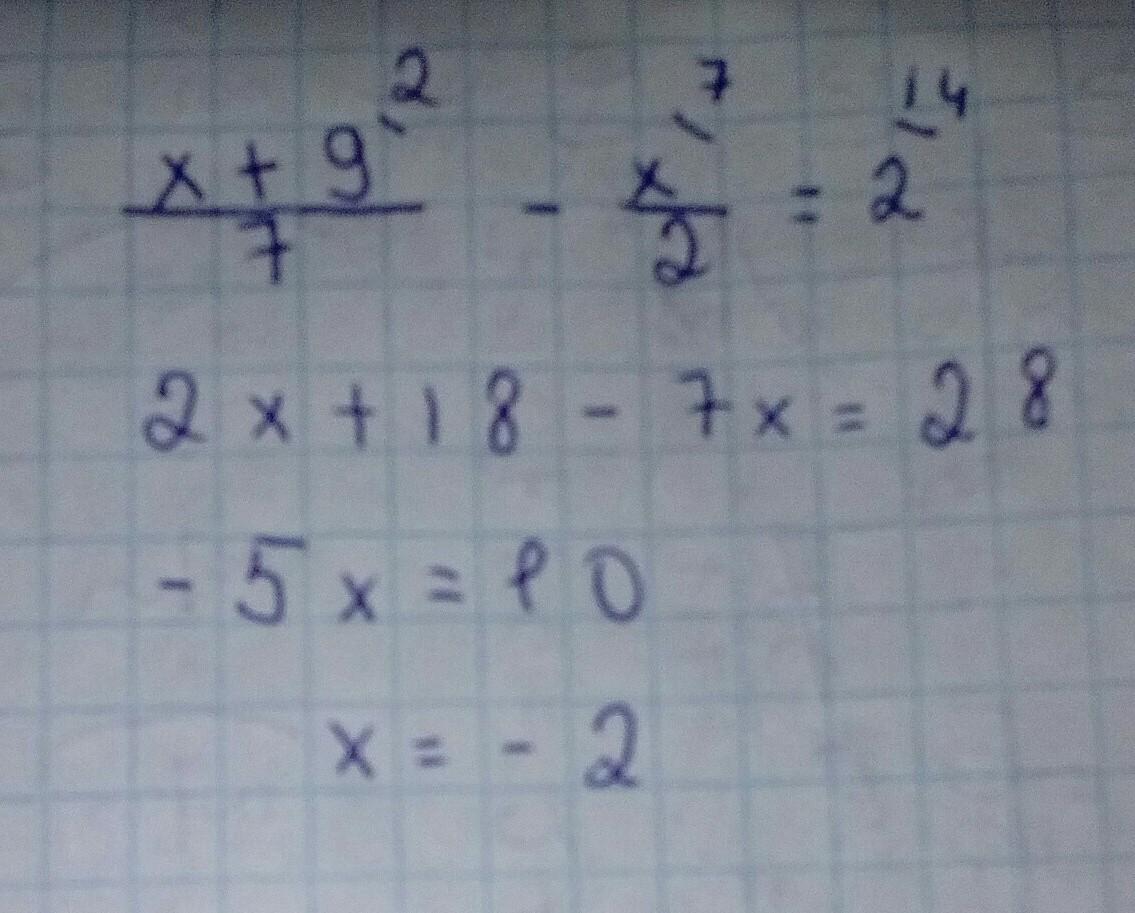 (x + 9)/7 \ 2 - x/2 \ 7 = 2 \ 14
2x + 18 - 7x = 28
- 5x = 10
x = - 2